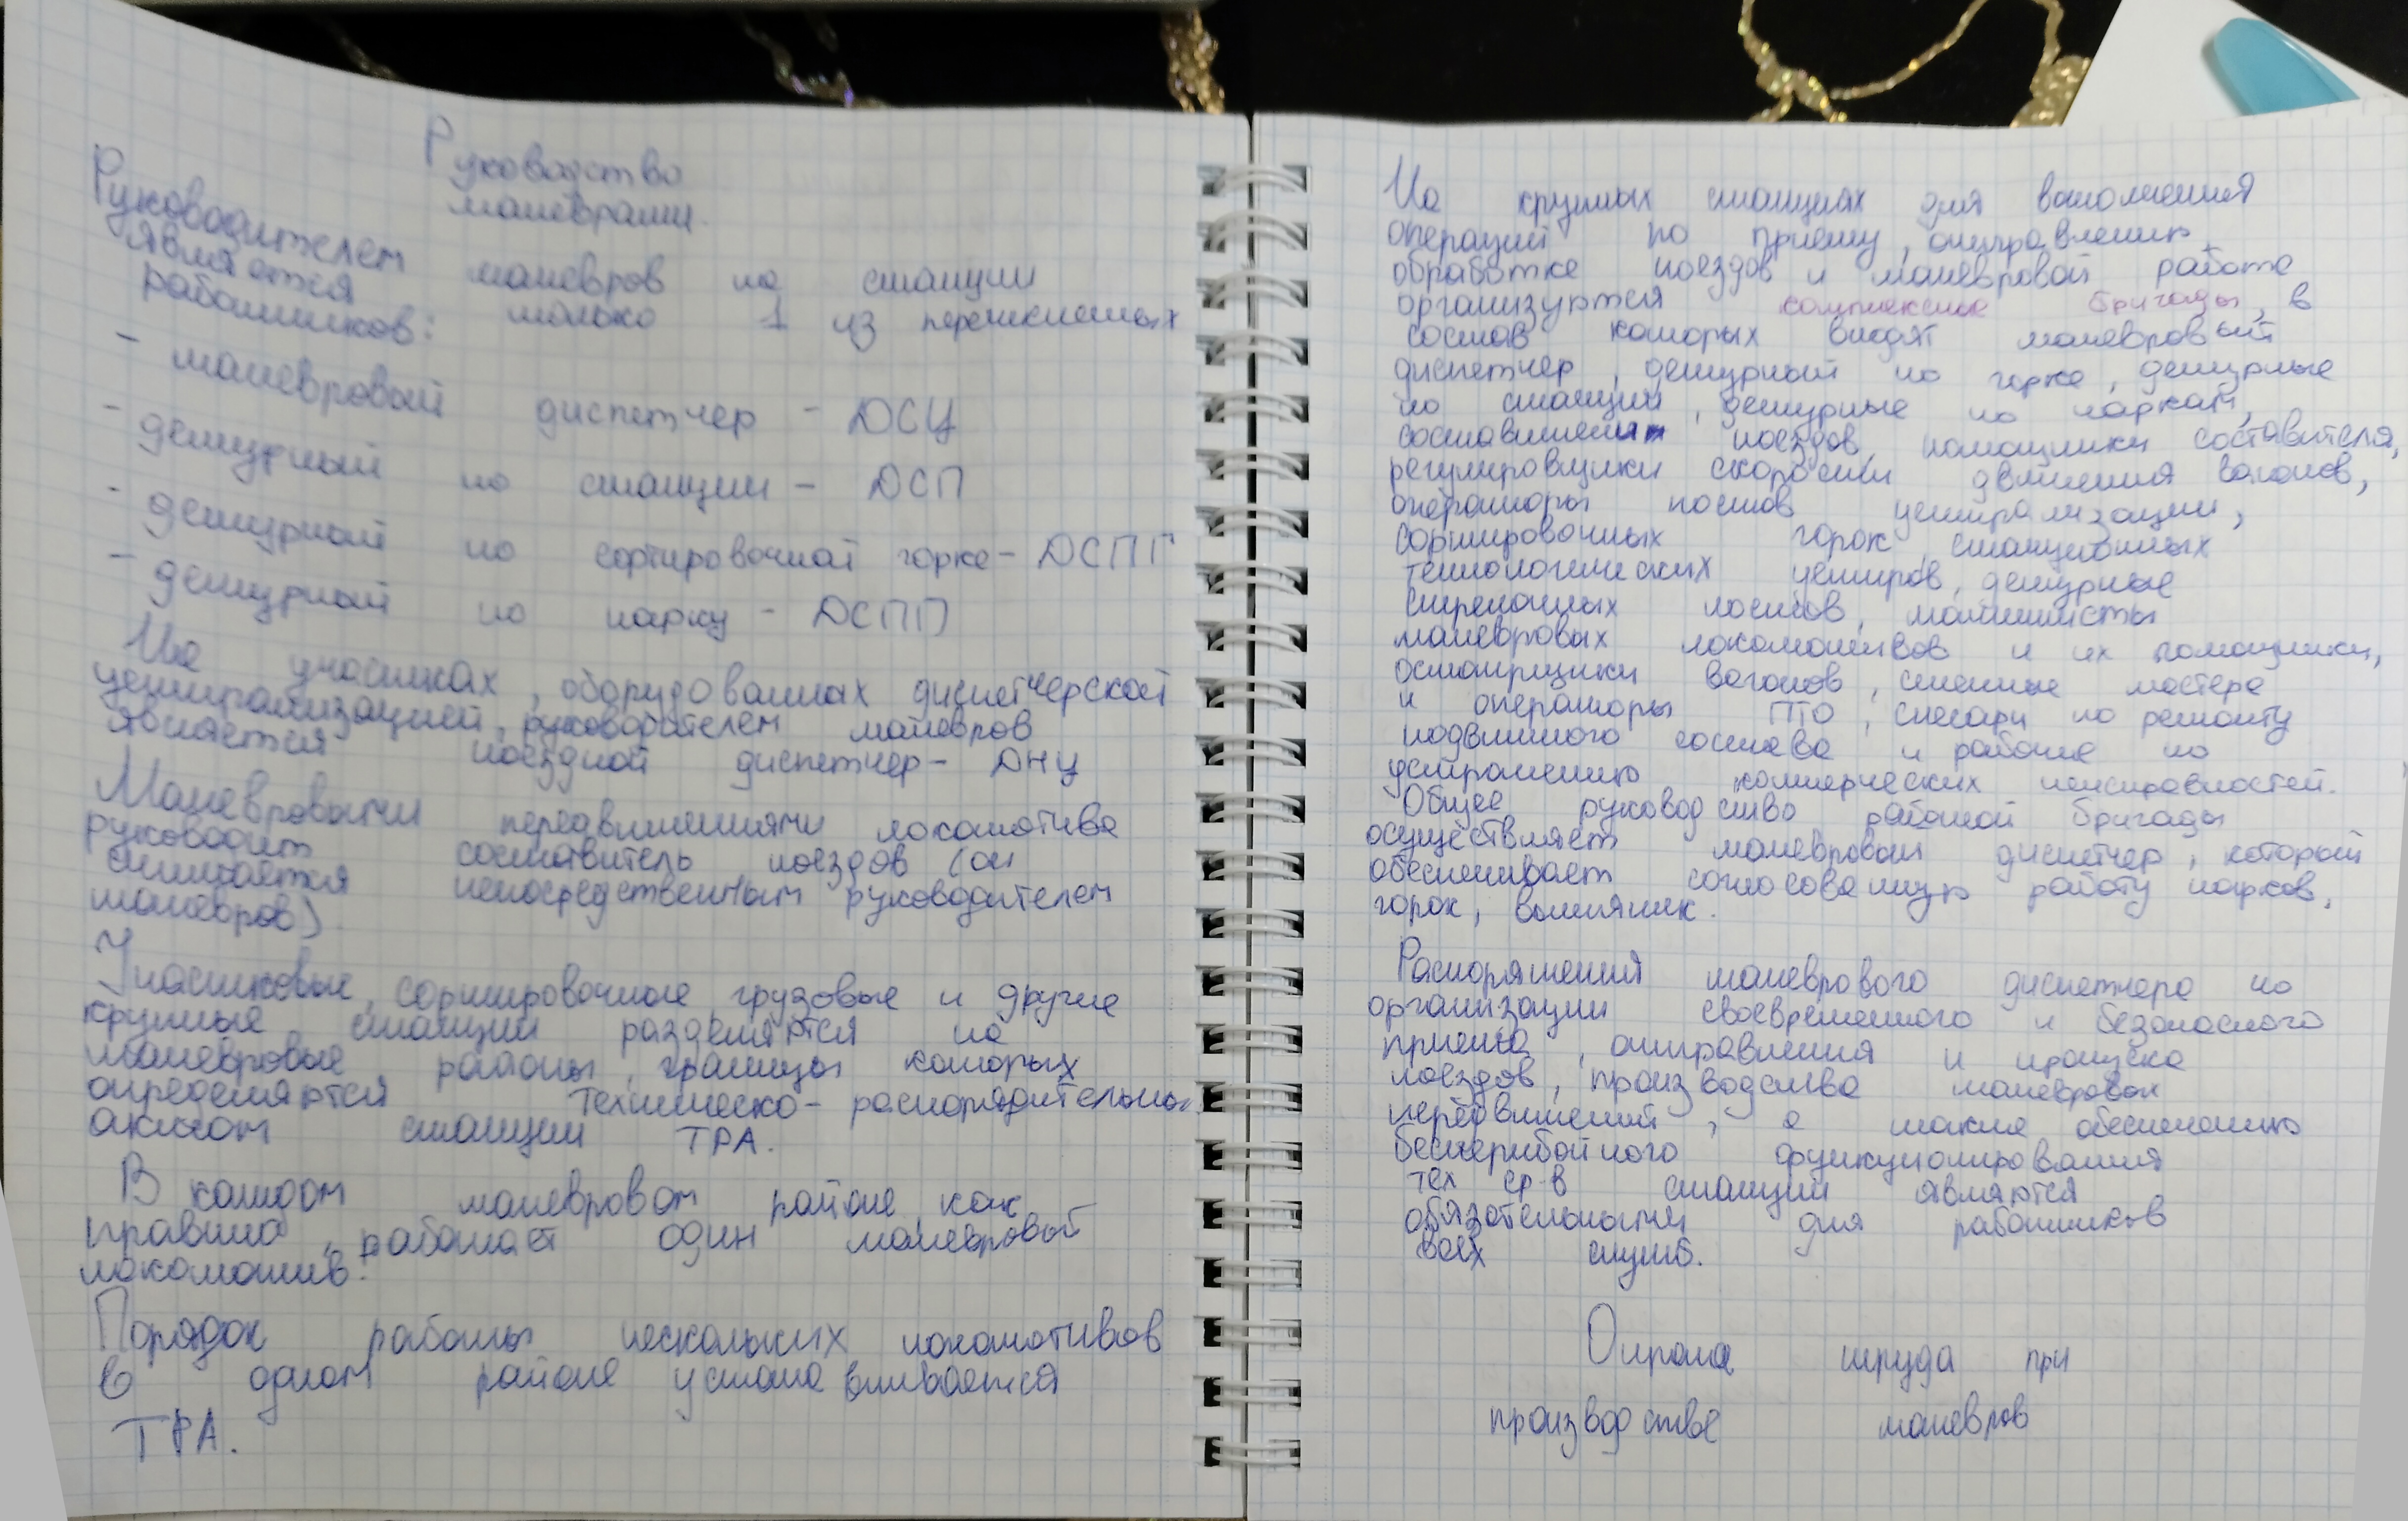 Руководство
маневрами.
Руководителем маневров на станции
является только 1 из перечисленных
работников:
- маневровый диспетчер - ДСЦ
- дежурный по станции - ДСП
- дежурный по сортировочной горке - ДСПГ
- дежурный по парку - ДСПП
На участках, оборудованных диспетчерской
централизацией, руководителем маневров
является поездной диспетчер - ДНЦ
Маневровыми передвижениями локомотива
руководит составитель поездов (он
считается непосредственным руководителем
маневров)
Участковые, сортировочные, грузовые и другие
крупные станции разделяются на
маневровые районы, границы которых
определяются техническо-распорядительным
актом станции ТРА.
В каждом маневровом районе, как
правило, работает один маневровый
локомотив.
Порядок работы нескольких локомотивов
в одном районе устанавливается
ТРА.
На крупных станциях для выполнения
операций по приему, отправлению,
обработке поездов и маневровой работе
организуются комплексные бригады, в
состав которых входят маневровый
диспетчер, дежурный по горке, дежурные
по станции, дежурные по паркам,
составители поездов, помощники составителя,
регулировщики скорости движения вагонов,
операторы постов централизации,
сортировочных горок, станционных
технологических центров, дежурные
стрелочных постов, машинисты
маневровых локомотивов и их помощники,
осмотрщики вагонов, сменные мастера
и операторы ПТО, слесари по ремонту
подвижного состава и рабочие по
устранению коммерческих неисправностей.
Общее руководство работой бригады
осуществляет маневровый диспетчер, который
обеспечивает согласованную работу парков,
горок, вытяжек.
Распоряжения маневрового диспетчера по
организации своевременного и безопасного
приема, отправления и пропуска
поездов, производства маневровых
передвижений, а также обеспечению
бесперебойного функционирования
тех ср-в станции являются
обязательными для работников
всех служб.
Охрана труда при
производстве маневров